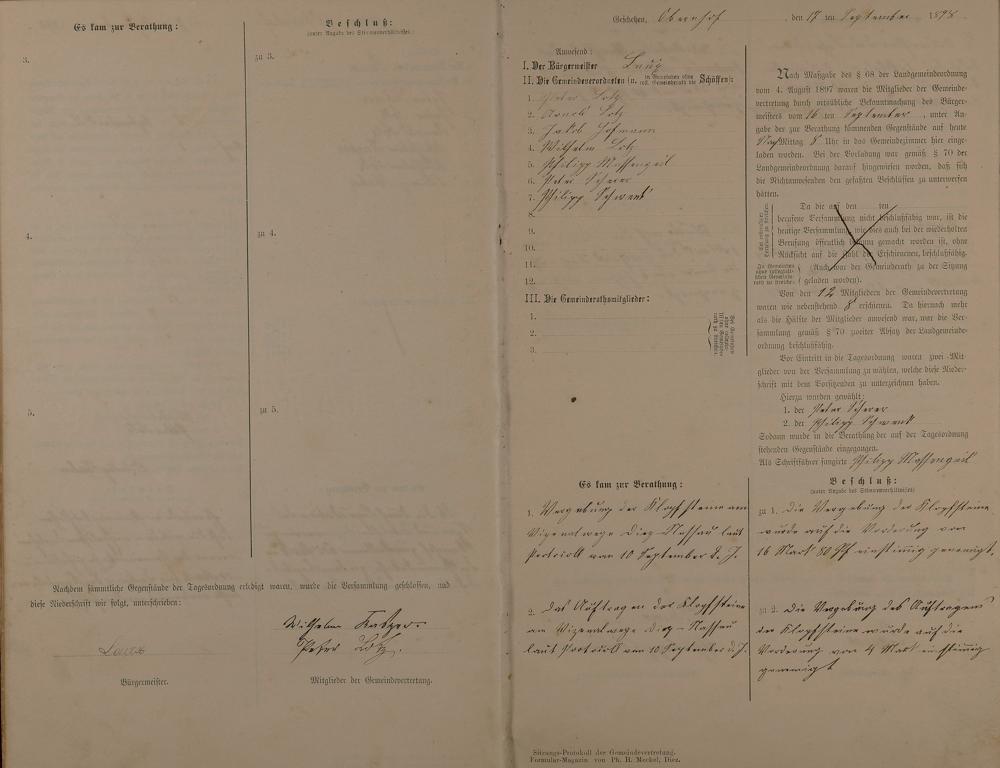 Es kam zur Berathung:
Beschluß:
(unter Angabe des Stimmenverhältnisses:)
3.
zu 3.
4.
zu 4.
5.
zu 5.
Nachdem sämmtliche Gegenstände der Tagesordnung erledigt waren, wurde die Versammlung geschlossen, und
diese Niederschrift wie folgt, unterschrieben:
Wilhelm
Peter Lotz.
Bürgermeister.
Mitglieder der Gemeindevertretung.
Geschehen, Obernhof, den 17 ten September 1898.
Anwesend:
I. Der Bürgermeister
II. Die Gemeindeverordneten (u. in Gemeinden ohne coll. Gemeinderath die Schöffen):
1. Peter Lotz
2. Lotz
3. Jakob Hofmann
4. Wilhelm Lotz
5. Philipp Massengeil
6. Peter Scherer
7. Philipp Schwenk
8.
9.
10.
11.
12.
III. Die Gemeinderathsmitglieder:
1.
2.
3.
Nach Maßgabe des § 68 der Landgemeindeordnung
vom 4. August 1897 waren die Mitglieder der Gemeinde-
vertretung durch ortsübliche Bekanntmachung des Bürger-
meisters vom 16 ten September, unter An-
gabe der zur Berathung kommenden Gegenstände auf heute
Nachmittag 8 Uhr in das Gemeindezimmer hier einge-
laden worden. Bei der Vorladung war gemäß § 70 der
Landgemeindeordnung darauf hingewiesen worden, daß sich
die Nichtanwesenden den gefaßten Beschlüssen zu unterwerfen
hätten.
Da die auf den ten
berufene Versammlung nicht beschlußfähig war, ist die
heutige Versammlung, wie dies auch bei der wiederholten
Berufung öffentlich bekannt gemacht worden ist, ohne
Rücksicht auf die Zahl der Erschienenen, beschlußfähig.
(Auch war der Gemeinderath zu der Sitzung
geladen worden).
Von den 12 Mitgliedern der Gemeindevertretung
waren wie nebenstehend 8 erschienen. Da hiernach mehr
als die Hälfte der Mitglieder anwesend war, war die Ver-
sammlung gemäß § 70 zweiter Absatz der Landgemeinde-
ordnung beschlußfähig.
Vor Eintritt in die Tagesordnung waren zwei Mit-
glieder von der Versammlung zu wählen, welche diese Nieder-
schrift mit dem Vorsitzenden zu unterzeichnen haben.
Hierzu wurden gewählt:
1. der Peter Scherer
2. der Philipp Schwenk
Sodann wurde in die Berathung der auf der Tagesordnung
stehenden Gegenstände eingegangen.
Als Schriftführer fungirte Philipp Massengeil
Es kam zur Berathung:
Beschluß:
(unter Angabe des Stimmenverhältnisses)
1. Vergebung der Klopfsteine am
Vizenalwege Diez-Nassau laut
Protocoll von 10 September d. J.
zu 1. Die Vergebung der Klopfsteine
wurde auf die Vorderung von
16 Mark 80 Pf einstimmig genemigt.
2. Das Auftragen der Klopfsteine
am Vizenalwege Diez-Nassau
laut Protocoll von 10 September d. J.
zu 2. Die Vergebung des Auftragens
der Klopfsteine wurde auf die
Vorderung von 4 Mark einstimmig
genemigt
Sitzungs-Protokoll der Gemeindevertretung.
Formular-Magazin von Ph. H. Meckel, Diez.